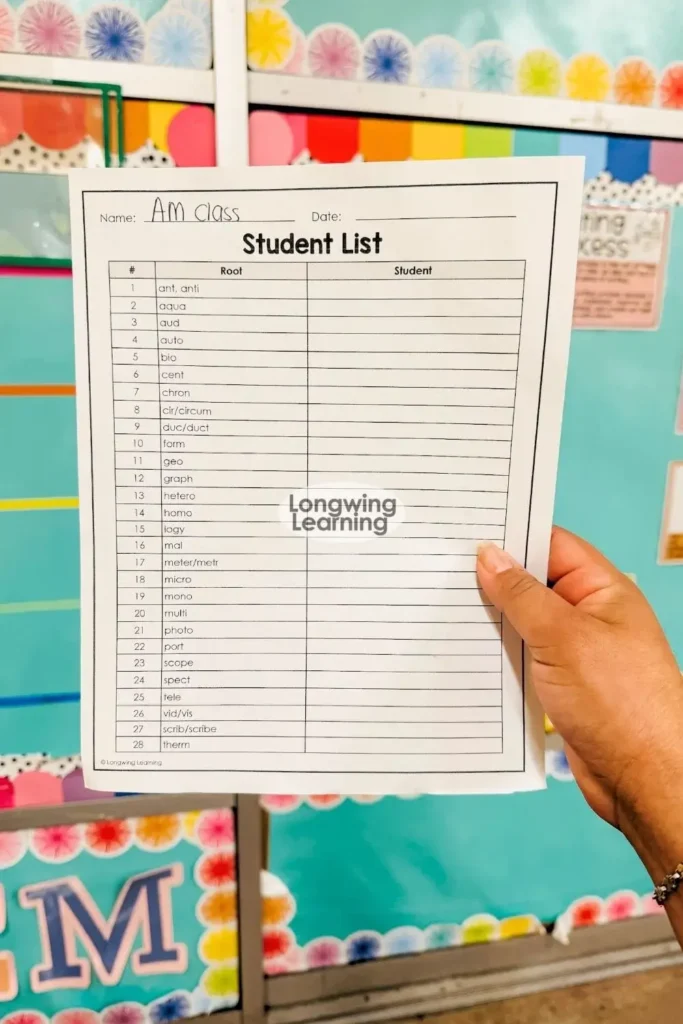 Name: AM class Date:
Student List
# Root Student
1 ant, anti
2 aqua
3 aud
4 auto
5 bio
6 cent
7 chron
8 cir/circum
9 duc/duct
10 form
11 geo
12 graph
13 hetero
14 homo
15 logy
16 mal
17 meter/metr
18 micro
19 mono
20 multi
21 photo
22 port
23 scope
24 spect
25 tele
26 vid/vis
27 scrib/scribe
28 therm
© Longwing Learning
Longwing
Learning
M